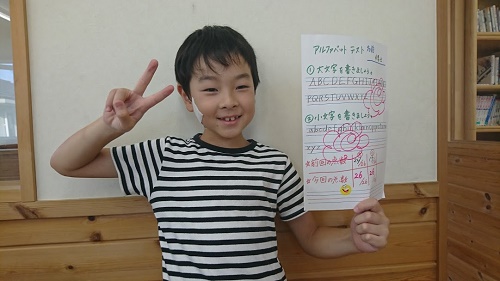 アルファベット テスト 名前
① 大文字を書きましょう。
ABCDEFGHI
PQRSTUVWXYZ
② 小文字を書きましょう。
abcdefghijklmnopqrstuvw
xyz
☆前回の点数
☆今回の点数 26/26 26